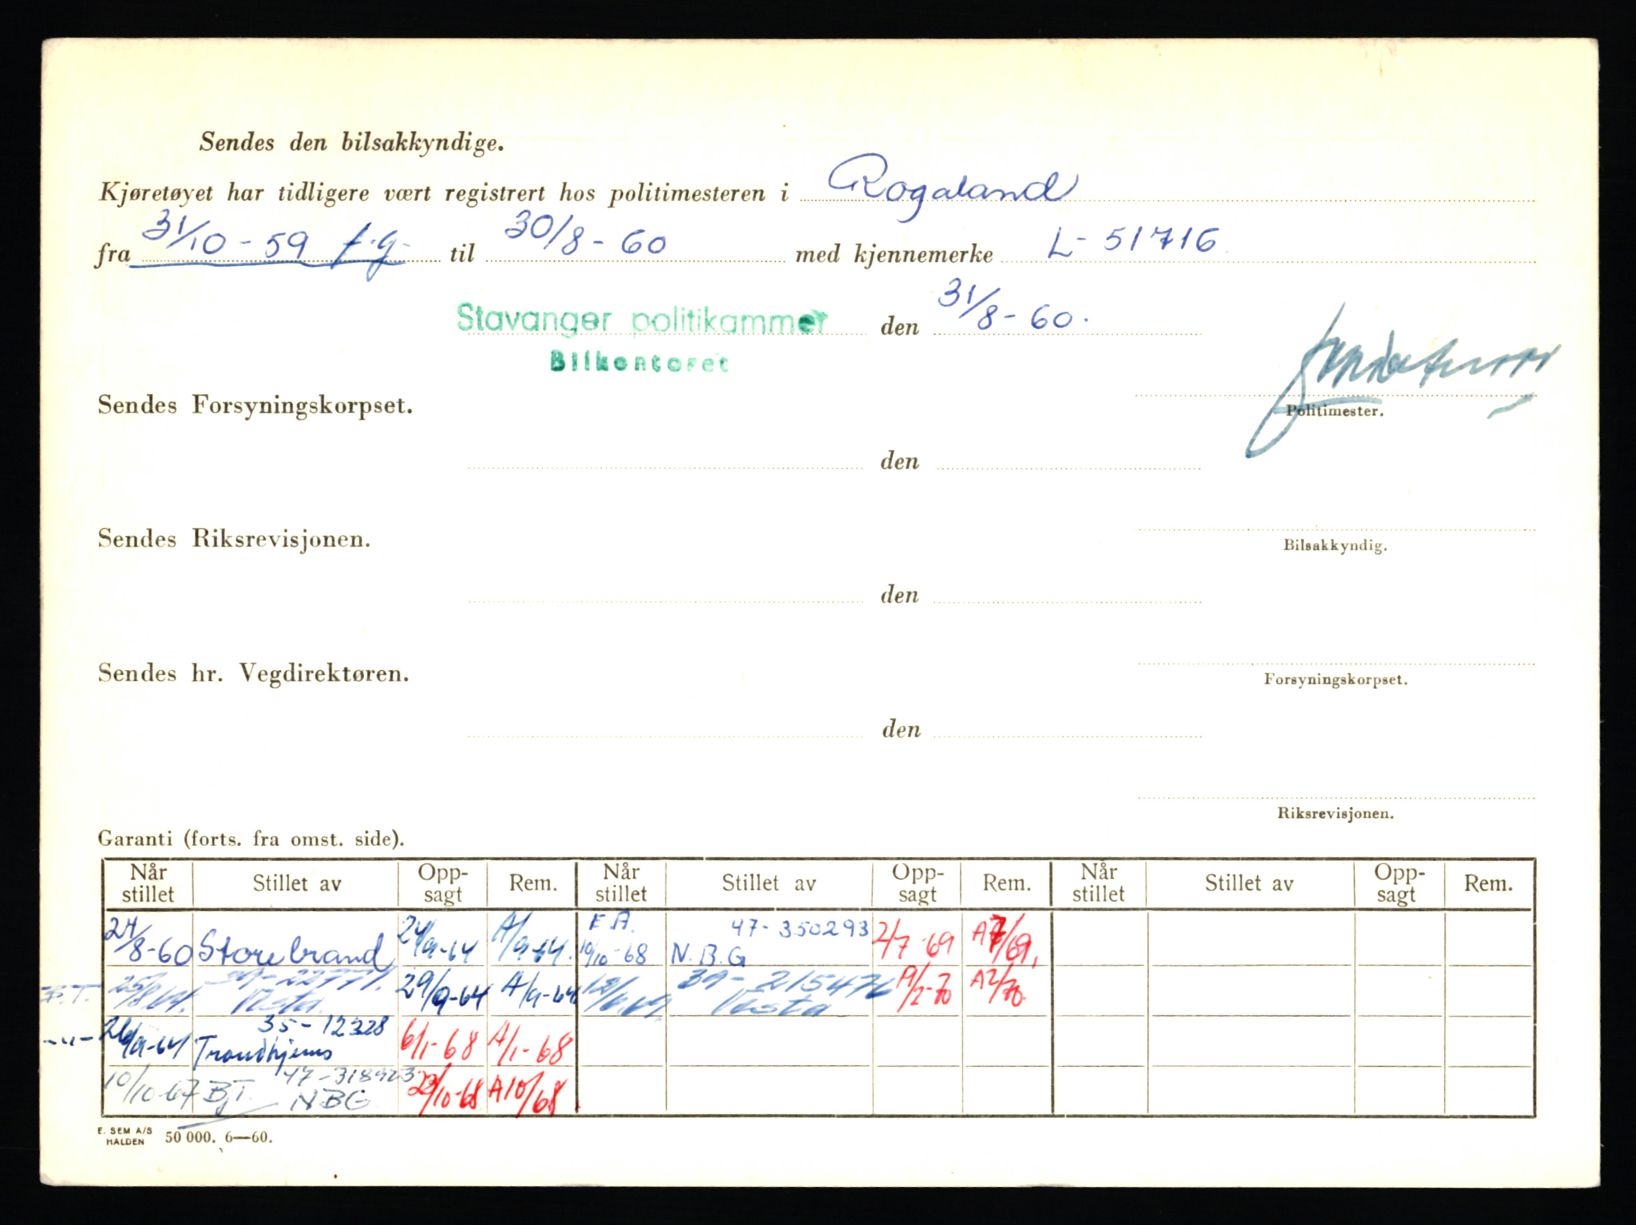 Sendes den bilsakkyndige.
Kjøretøyet har tidligere vært registrert hos politimesteren i Rogaland
fra 31/10-59 f.g. til 30/8-60 med kjennemerke L-51716
Stavanger politikammer den 31/8-60.
Bilkontoret
Sendes Forsyningskorpset.
Politimester.
den
Sendes Riksrevisjonen.
Bilsakkyndig.
den
Sendes hr. Vegdirektøren.
Forsyningskorpset.
den
Riksrevisjonen.
Garanti (forts. fra omst. side).
Når stillet Stillet av Opp-sagt Rem. Når stillet Stillet av Opp-sagt Rem. Når stillet Stillet av Opp-sagt Rem.
24/8-60 Storebrand 24/9-64 A/9-64. E A. 19/10-68 47-350293 N.B.G 2/7-69 A7/69,
Vesta 29/9-64 A/9-64 39-215476 Vesta A/2-70 A2/70
-"- 26/9-64 35-12328 Trondhjems 6/1-68 A/1-68
10/10-67 B.T. 47-318923 NBG 22/10-68 A10/68
E. SEM A/S HALDEN 50 000. 6—60.